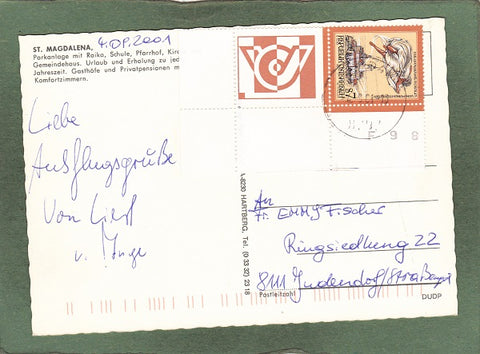 ST. MAGDALENA, 4.09.2001
Parkanlage mit Raika, Schule, Pfarrhof, Kirc
Gemeindehaus. Urlaub und Erholung zu jed
Jahreszeit. Gasthöfe und Privatpensionen m
Komfortzimmern.
Liebe
Ausflugsgrüße
von Liesl
u. Inge
8230 HARTBERG, Tel. (0 33 32) 23 18
REPUBLIK ÖSTERREICH
An
Fr. EMMY Fischer
Ringsiedlung 22
8111 Judendorf/Straßengel
Postleitzahl
DUDP